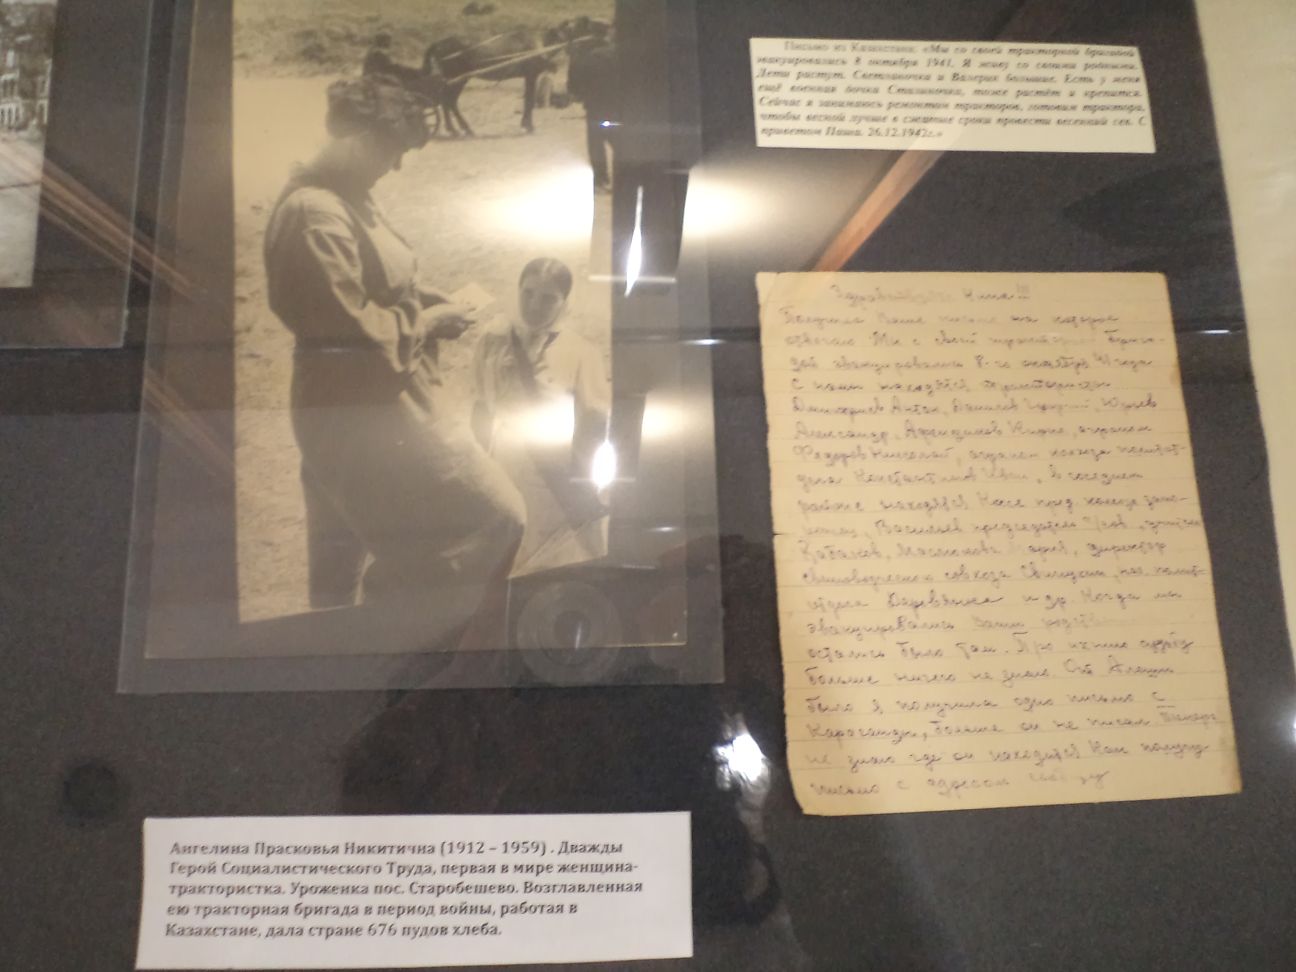 Письмо из Казахстана: «Мы со своей тракторной бригадой
эвакуировались 8 октября 1941. Я живу со своими родными.
Дети растут. Светланочка и Валерик большие. Есть у меня
ещё военная дочка Сталиночка, тоже растёт и крепится.
Сейчас я занимаюсь ремонтом тракторов, готовим трактора,
чтобы весной лучше в сжатые сроки провести весенний сев. С
приветом Паша. 26.12.1942г.»
Здравствуйте Нина!!!
Получила Ваше письмо на которое
отвечаю. Мы с своей тракторной брига-
дой эвакуировались 8-го октября 41 года
С нами находятся трактористы
Дмитриев Антон, Данилов, Юрьев
Александр, Афендиков Кирил, агроном
Федоров Николай, полит-
дела Константинов Иван, в соседнем
районе находятся Косе пред. колхоза
Васильев председатель
Кабанов, директор
свиноводческого совхоза нач. полит-
отдела Деревянка и др. Когда мы
эвакуировались Ваши
остались были там. Про ихнюю судьбу
больше ничего не знаю. От Алеши
было я получила одно письмо с
Караганды, больше он не писал Теперь
не знаю где он находится Как получу
письмо с адресом сообщу
Ангелина Прасковья Никитична (1912 – 1959) . Дважды
Герой Социалистического Труда, первая в мире женщина-
трактористка. Уроженка пос. Старобешево. Возглавленная
ею тракторная бригада в период войны, работая в
Казахстане, дала стране 676 пудов хлеба.